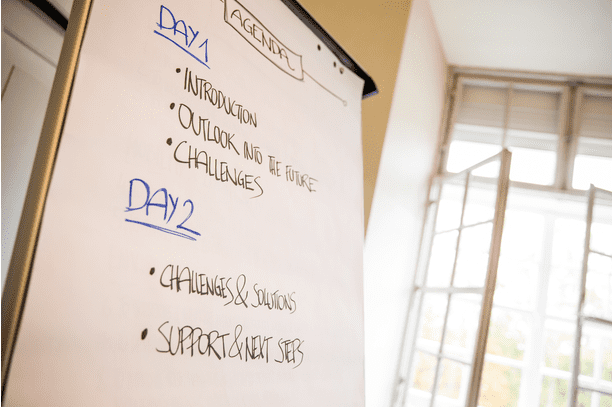 AGENDA
DAY 1
• INTRODUCTION
• OUTLOOK INTO THE FUTURE
• CHALLENGES
DAY 2
• CHALLENGES & SOLUTIONS
• SUPPORT & NEXT STEPS